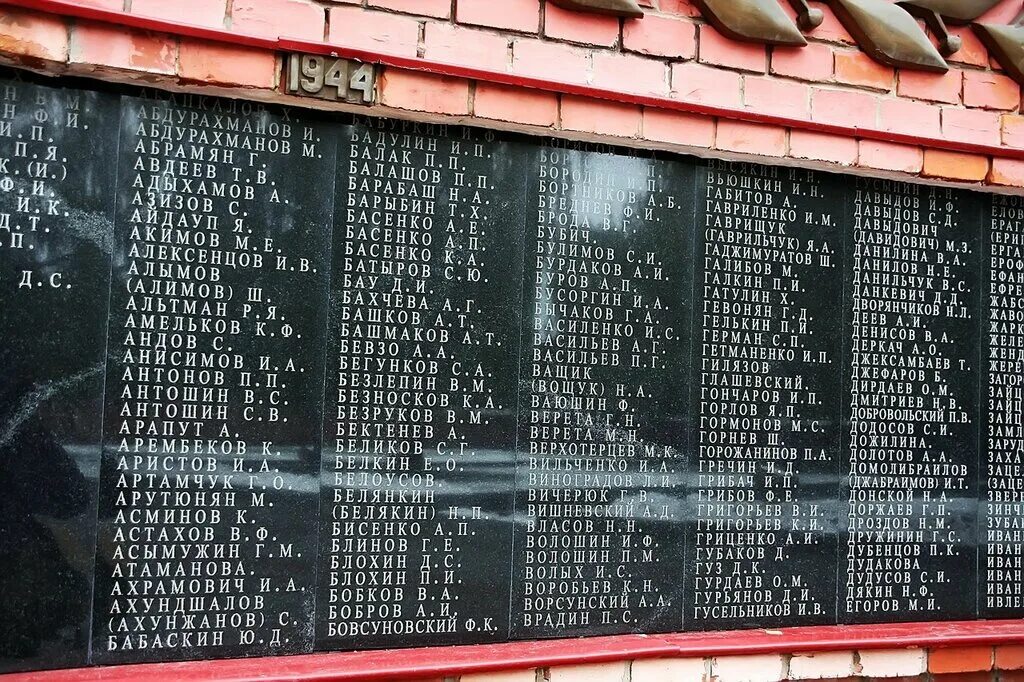 1944
Д.С.
АБДУРАХМАНОВ И.
АБДУРАХМАНОВ М.
АБРАМЯН Г.
АВДЕЕВ Т.В.
АДЫХАМОВ А.
АЗИЗОВ С.
АЙДАУП Я.
АКИМОВ М.Е.
АЛЕКСЕНЦОВ И.В.
АЛЫМОВ
(АЛИМОВ) Ш.
АЛЬТМАН Р.Я.
АМЕЛЬКОВ К.Ф.
АНДОВ С.
АНИСИМОВ И.А.
АНТОНОВ П.П.
АНТОШИН В.С.
АНТОШИН С.В.
АРАПУТ А.
АРЕМБЕКОВ К.
АРИСТОВ И.А.
АРТАМЧУК Г.О.
АРУТЮНЯН М.
АСМИНОВ К.
АСТАХОВ В.Ф.
АСЫМУЖИН Г.М.
АТАМАНОВА.
АХРАМОВИЧ И.А.
АХУНДШАЛОВ
(АХУНЖАНОВ) С.
БАБАСКИН Ю.Д.
БАБУРКИН И.Ф.
БАДУЛИН И.П.
БАЛАК П.П.
БАЛАШОВ П.П.
БАРАБАШ Н.А.
БАРЫБИН Т.Х.
БАСЕНКО А.Е.
БАСЕНКО А.П.
БАСЕНКО К.А.
БАТЫРОВ С.Ю.
БАУ Д.И.
БАХЧЕВА А.Г.
БАШКОВ А.Т.
БАШМАКОВ А.Т.
БЕВЗО А.А.
БЕГУНКОВ С.А.
БЕЗЛЕПИН В.М.
БЕЗНОСКОВ К.А.
БЕЗРУКОВ В.М.
БЕКТЕНЕВ А.
БЕЛИКОВ С.Г.
БЕЛКИН Е.О.
БЕЛОУСОВ.
БЕЛЯНКИН
(БЕЛЯКИН) Н.П.
БИСЕНКО А.П.
БЛИНОВ Г.Е.
БЛОХИН Д.С.
БЛОХИН П.И.
БОБКОВ В.А.
БОБРОВ А.И.
БОВСУНОВСКИЙ Ф.К.
БОРОДИН
БОРТНИКОВ А.Б.
БРЕДНЕВ Ф.И.
БРОДА В.Г.
БУБИЧ.
БУЛИМОВ С.И.
БУРДАКОВ А.И.
БУРОВ А.П.
БУСОРГИН И.А.
БЫЧАКОВ Г.А.
ВАСИЛЕНКО И.С.
ВАСИЛЬЕВ А.Г.
ВАСИЛЬЕВ П.Г.
ВАЩИК
(ВОЩУК) Н.А.
ВАЮШИН Ф.
ВЕРЕТА Г.Н.
ВЕРЕТА М.Н.
ВЕРХОТЕРЦЕВ М.К.
ВИЛЬЧЕНКО И.А.
ВИНОГРАДОВ Л.И.
ВИЧЕРЮК Г.В.
ВИШНЕВСКИЙ А.Д.
ВЛАСОВ Н.Н.
ВОЛОШИН И.Ф.
ВОЛОШИН П.М.
ВОЛЫХ И.С.
ВОРОБЬЕВ К.Н.
ВОРСУНСКИЙ А.А.
ВРАДИН П.С.
ВЬЮШКИН И.Н.
ГАБИТОВ А.
ГАВРИЛЕНКО И.М.
ГАВРИЩУК
(ГАВРИЛЬЧУК) Я.А.
ГАДЖИМУРАТОВ Ш.
ГАЛИБОВ М.
ГАЛКИН П.И.
ГАТУЛИН Х.
ГЕВОНЯН Г.Д.
ГЕЛЬКИН П.И.
ГЕРМАН С.П.
ГЕТМАНЕНКО И.П.
ГИЛЯЗОВ
ГЛАШЕВСКИЙ.
ГОНЧАРОВ И.П.
ГОРЛОВ Я.П.
ГОРМОНОВ М.С.
ГОРНЕВ Ш.
ГОРОЖАНИНОВ П.А.
ГРЕЧИН И.Д.
ГРИБАЧ И.П.
ГРИБОВ Ф.Е.
ГРИГОРЬЕВ В.И.
ГРИГОРЬЕВ К.И.
ГРИЦЕНКО А.И.
ГУБАКОВ Д.
ГУЗ Д.К.
ГУРДАЕВ О.М.
ГУРЬЯНОВ Д.И.
ГУСЕЛЬНИКОВ И.В.
ДАВЫДОВ И.Ф.
ДАВЫДОВ С.Д.
ДАВЫДОВИЧ
(ДАВИДОВИЧ) М.З.
ДАНИЛИНА В.А.
ДАНИЛОВ Н.Е.
ДАНИЛЬЧУК В.С.
ДАНКЕВИЧ Д.Д.
ДВОРЯНЧИКОВ Н.Л.
ДЕЕВ А.И.
ДЕНИСОВ В.А.
ДЕРКАЧ А.О.
ДЖЕКСАМБАЕВ Т.
ДЖЕФАРОВ Б.
ДИРДАЕВ О.М.
ДМИТРИЕВ Н.В.
ДОБРОВОЛЬСКИЙ П.В.
ДОДОСОВ С.И.
ДОЖИЛИНА.
ДОЛОТОВ А.А.
ДОМОЛИБРАИЛОВ
(ДЖАБРАИМОВ) И.Т.
ДОНСКОЙ Н.А.
ДОРЖАЕВ Г.П.
ДРОЗДОВ Н.М.
ДРУЖИНИН Г.С.
ДУБЕНЦОВ П.К.
ДУДАКОВА
ДУДУСОВ С.И.
ДЯКИН Н.Ф.
ЕГОРОВ М.И.